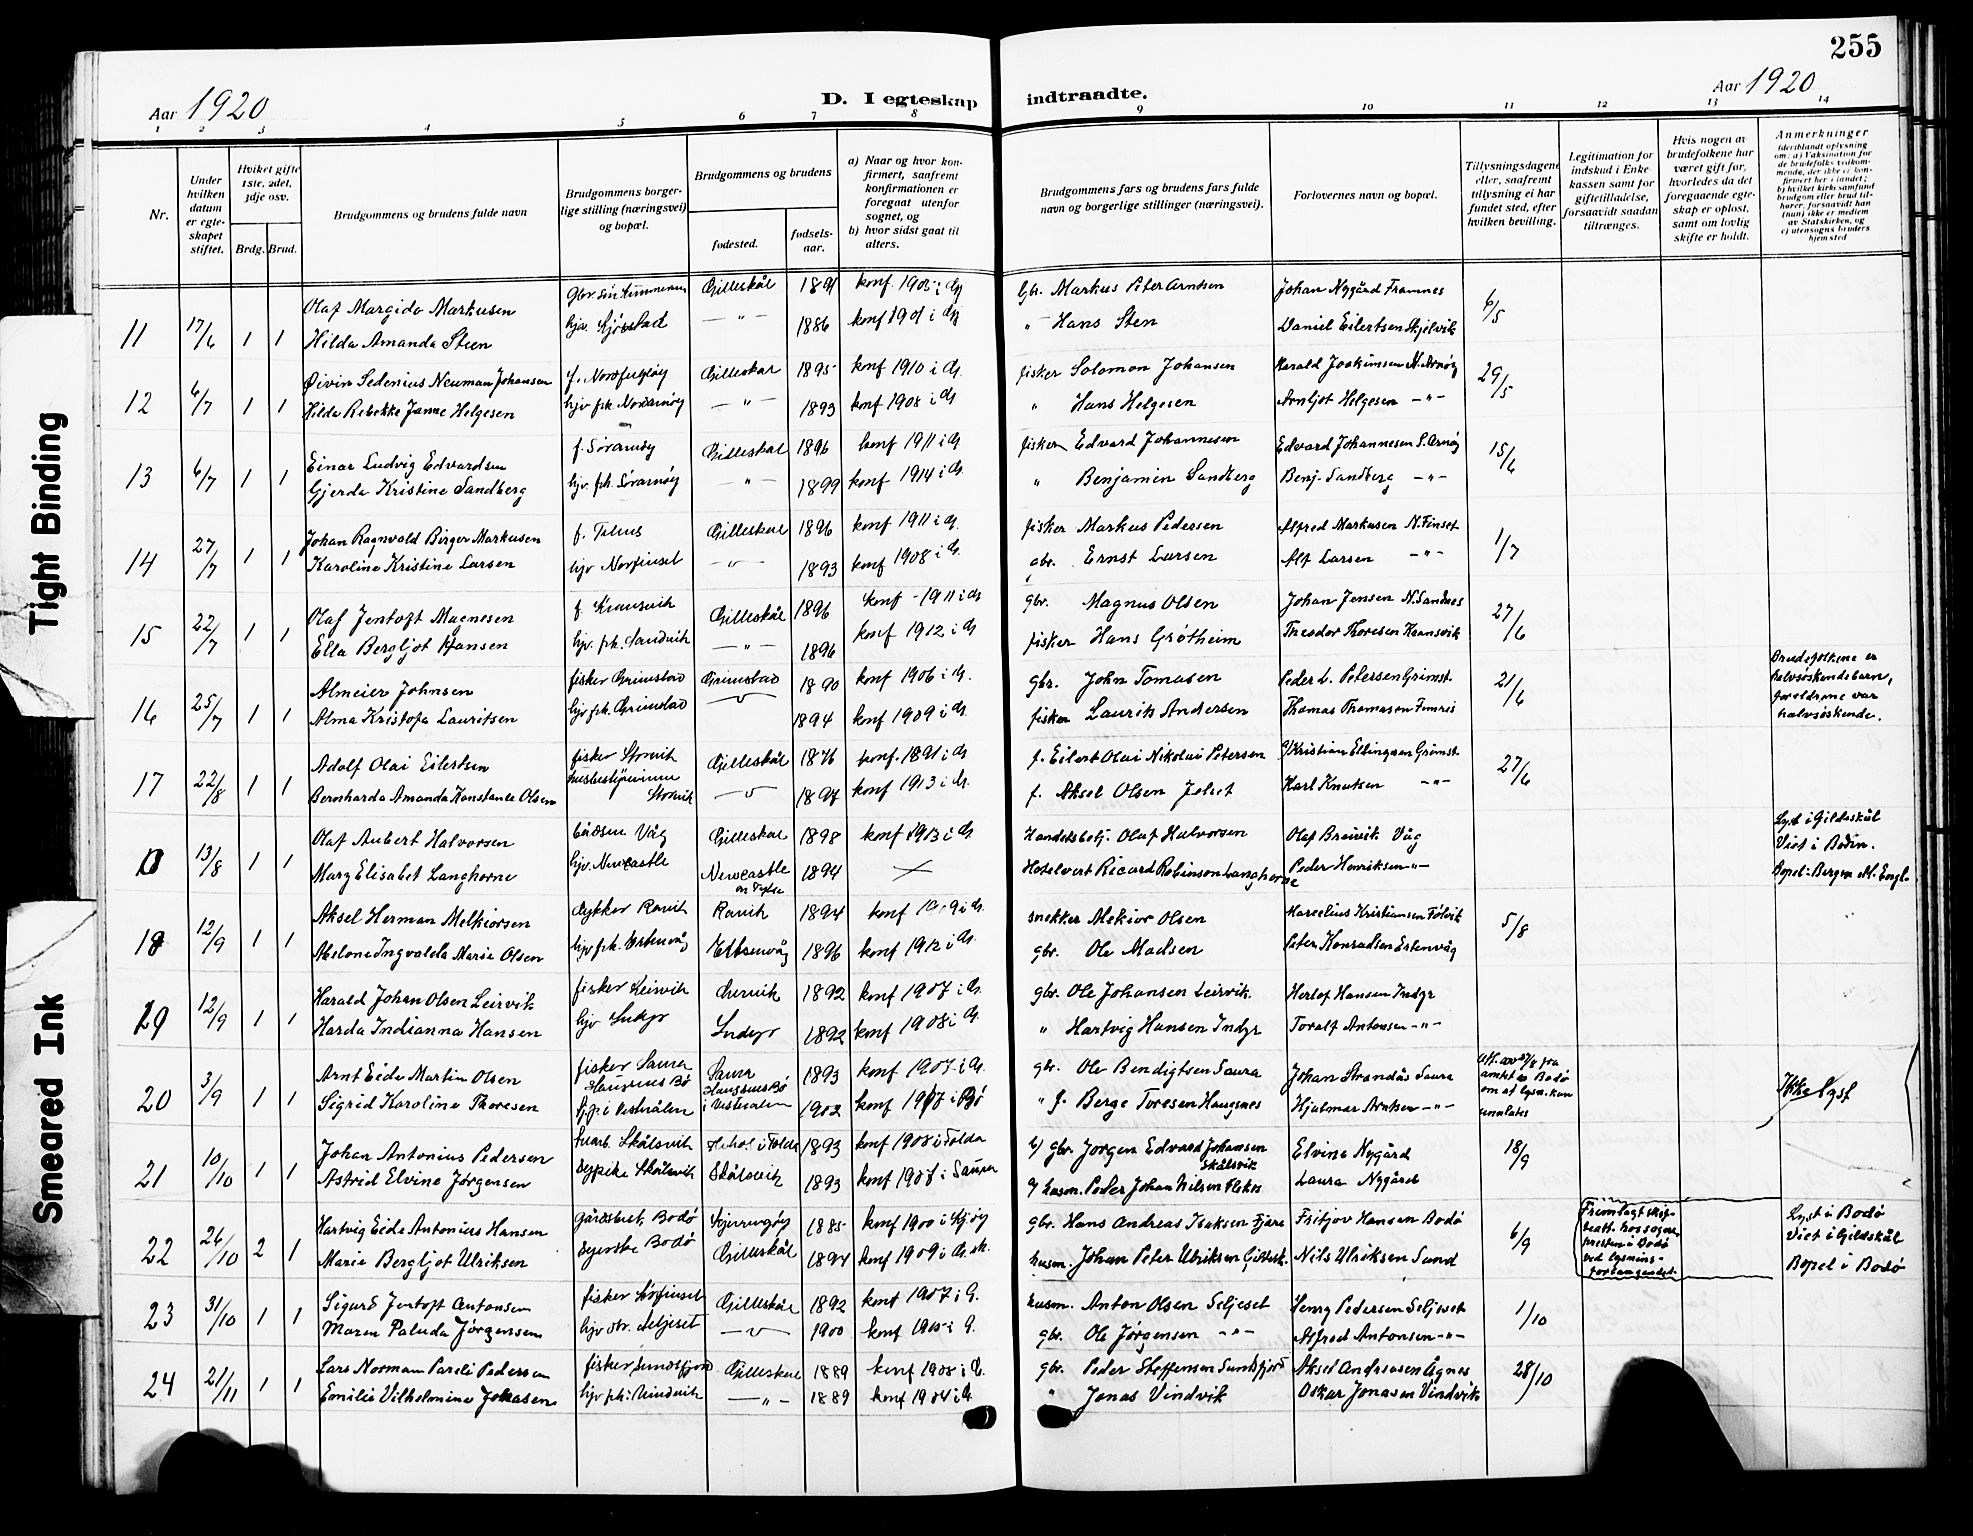 255
Aar 1920
D. I egteskap indtraadte.
Aar 1920
1 2 3 4 5 6 7 8 9 10 11 12 13 14
Nr.
Under hvilken datum er egteskapet stiftet.
Hvilket gifte 1ste, 2det, 3dje osv.
Brdg. Brud.
Brudgommens og brudens fulde navn
Brudgommens borgerlige stilling (næringsvei) og bopæl.
Brudgommens og brudens
fødested.
fødselsaar.
a) Naar og hvor konfirmert, saafremt konfirmationen er foregaat utenfor sognet, og
b) hvor sidst gaat til alters.
Brudgommens fars og brudens fars fulde navn og borgerlige stillinger (næringsvei).
Forlovernes navn og bopæl.
Tillysningsdagene eller, saafremt tillysning ei har fundet sted, efter hvilken bevilling.
Legitimation for indskud i Enkekassen samt for giftetilladelse, forsaavidt saadan tiltrænges.
Hvis nogen av brudefolkene har været gift før, hvorledes da det foregaaende egteskap er opløst, samt om lovlig skifte er holdt.
Anmerkninger (deriblandt oplysning om: a) Vaksination for de brudefolks vedkommende, der ikke er konfirmert her i landet; b) hvilket kirkesamfund brudgom eller brud tilhører, forsaavidt han (hun) ikke er medlem av Statskirken, og c) utensogns bruders hjemsted
11 17/6 1 1 Olaf Margido Markusen Gilleskål 1891 konf. 1905 i G Gbr. Markus Peter Arntsen Johan Nygård Framnes 6/5
Hilda Amanda Steen — " — 1886 konf 1901 i G " Hans Sten Daniel Eilertsen Skjelvik
12 6/7 1 1 Øivin Sedenius Neuman Johansen f. Nordfugløy Gilleskål 1895 konf 1910 i G. fisker Solomon Johansen Harald Joakimsen N. Arnøy 29/5
Hilda Rebekke Janne Helgesen hjv. frk Nordarnøy — " — 1893 konf 1908 i G " Hans Helgesen Arnljot Helgesen — " —
13 6/7 1 1 Einar Ludvig Edvardsen f. Sørarnøy Gilleskål 1896 konf 1911 i G fisker Edvard Johannesen Edvard Johannesen S. Arnøy 15/6
Gjerda Kristine Sandberg hjv. frk. Sørarnøy — " — 1899 konf 1914 i G. " Benjamin Sandberg Benj. Sandberg — " —
14 27/7 1 1 Johan Ragnvald Birger Markusen Gilleskål 1896 konf 1911 i G. fisker Markus Pedersen Alfred Markusen N. Finset 1/7
Karoline Kristine Larsen hjv Norfinset — " — 1893 konf 1908 i G. gbr. Ernst Larsen Alf Larsen — " —
15 22/7 1 1 Olaf Jentoft Magnesen Gilleskål 1896 konf - 1911 i G gbr. Magnus Olsen Johan Jensen N. Sandnes 27/6
Ella Bergljot Hansen hjv. frk. Sandvik — " — 1896 konf 1912 i G fisker Hans Grøtheim Theodor Thoresen Kransvik
16 25/7 1 1 Almeier Johnsen fisker Grimstad Grimstad 1890 konf 1906 i G. gbr. John Tomasen Peder L. Petersen Grimst. 21/6 Brudefolkene er halvsøskendebarn, forældrene var halvsøskende.
Alma Kristofa Lauritsen hjv frk. Grimstad — " — 1894 konf 1909 i G. fisker Laurits Andersen Thomas Thomasen
17 22/8 1 1 Adolf Olai Eilertsen fisker Storvik Gilleskål 1876 konf. 1891 i G f. Eilert Olai Nikolai Petersen Kristian Ellingsen Grimst. 27/6
Bernharda Amanda Konstanse Olsen husbestyrerinne Storvik — " — 1897 konf 1913 i G. f. Aksel Olsen Karl Knutsen — " —
13/8 1 1 Olaf Aubert Halvorsen Våg Gilleskål 1898 konf 1913 i G Handelsbetj. Olaf Halvorsen Olaf Breivik Våg Lyst i Gildeskål Viet i Bodin.
Mary Elisabet Langhorne hjv. Newcastle Newcastle on Tyne 1894 Hotelvert Ricard Robinson Langhorne Peder Henriksen — " — Bopel: Bergen
18 12/9 1 1 Aksel Herman Melkiorsen dykker Ravik Ravik 1894 konf 1909 i G. snekker Melkior Olsen Marselius Kristiansen 5/8
Melone Ingvalda Marie Olsen 1896 konf 1912 i G. gbr. Ole Madsen Peter Konradsen
29 12/9 1 1 Harald Johan Olsen Leirvik fisker Leirvik Leirvik 1892 konf 1907 i G. gbr. Ole Johansen Leirvik. Herlof Hansen Indyr
Harda Indianna Hansen hjv Indyr Indyr 1892 konf 1908 i G. " Hartvig Hansen Indyr Toralf Antonsen — " —
20 3/9 1 1 Arnt Eide Martin Olsen fisker Saura Saura 1893 konf 1907 i G. gbr. Ole Bendigtsen Saura Johan Strandås Saura amtet Bodø om at lysn. kan unnlates Ikke lyst
Sigrid Karoline Thoresen Haugsnes Bø i Vesterålen Haugsnes Bø i Vesterålen 1902 konf 1917 i Bø " f. Berge Toresen Haugsnes Hjalmar Arntsen — " —
21 10/10 1 1 Johan Antonius Pedersen Skålsvik i Folda 1893 konf 1908 i Folda gbr. Jørgen Edvard Johansen Skålsvik Elvine Nygård 18/9
Astrid Elvine Jørgensen Skålsvik Skålsvik 1893 konf 1907 i Saura husm. Peder Johan Nilsen Laura Nygård
22 26/10 2 1 Hartvig Eide Antonius Hansen Bodø Kjerringøy 1885 konf 1900 i Kjøy gbr. Hans Andreas Isaksen Fjære Fritjov Hansen Bodø 6/9 Fremlagt skifteatt. hos sognepresten i Bodø ved lysningsforlangendet. Lyst i Bodø Viet i Gildskål Bopel i Bodø
Marie Bergljot Ulriksen syerske Bodø Gilleskål 1894 konf 1909 i G. sk. husm. Johan Peter Ulriksen Gildesk. Nils Ulriksen Sund
23 31/10 1 1 Sigurd Jentoft Antonsen fisker Norfinset Gilleskål 1892 konf 1907 i G. husm. Anton Olsen Seljeset Henry Pedersen Seljeset 1/10
Maren Paluda Jørgensen hjv. str. Seljeset — " — 1900 konf 1915 i G. gbr. Ole Jørgensen — " — Alfred Antonsen — " —
24 21/11 1 1 Lars Norman Pareli Pedersen fisker Sundsfjord Gilleskål 1889 konf 1905 i G. gbr. Peder Steffensen Sundsfjord Aksel Andreasen Ågnes 28/10
Emilie Vilhelmine Jonasen hjv frk. Vindvik — " — 1889 konf 1904 i G " Jonas Vindvik Oskar Jonasen Vindvik
Tight Binding
Smeared Ink